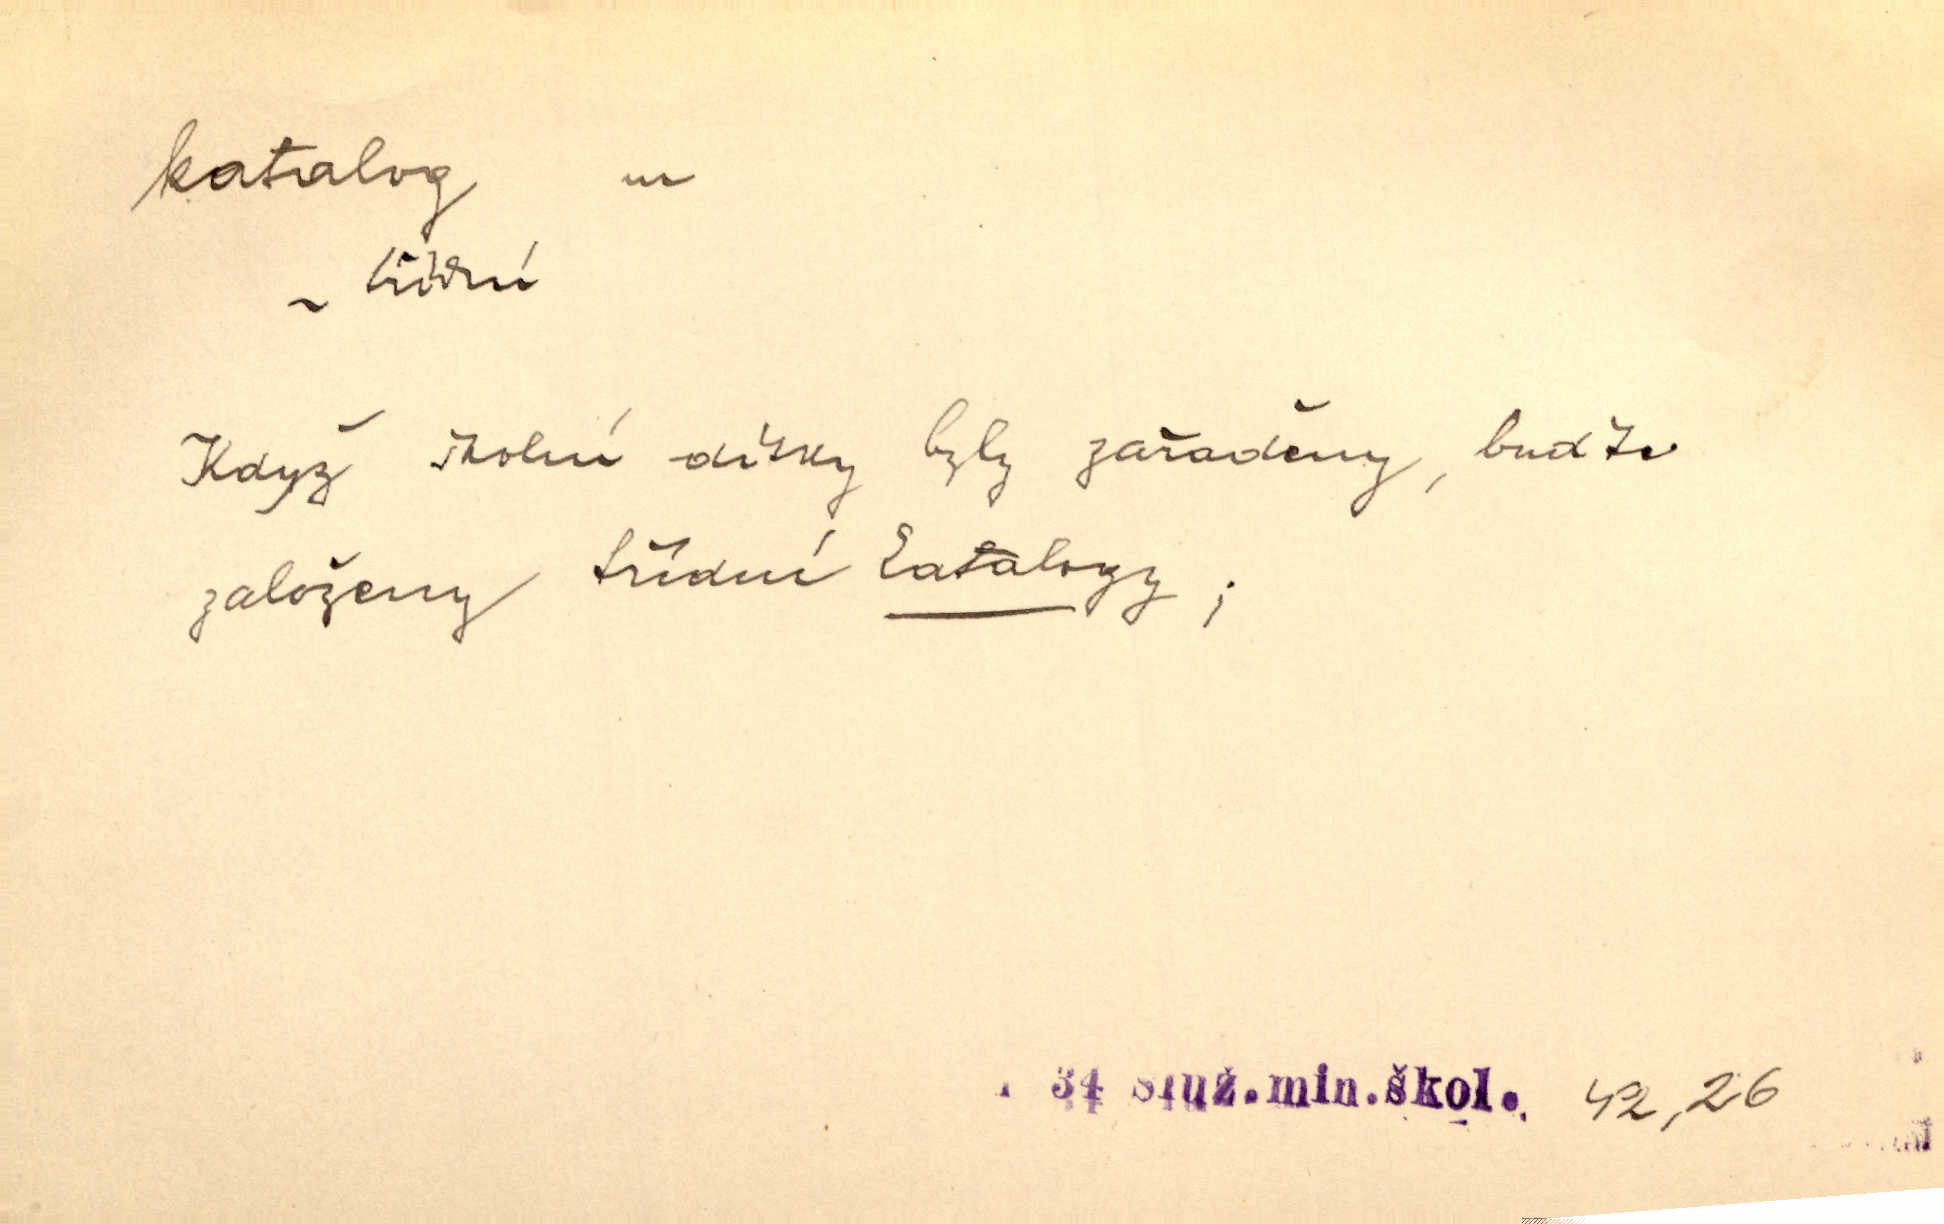 katalog m
~ třídní
Když školní dítky byly zařaděny, budťe
založeny třídní katalogy ;
34 Služ.min.škol. 42,26